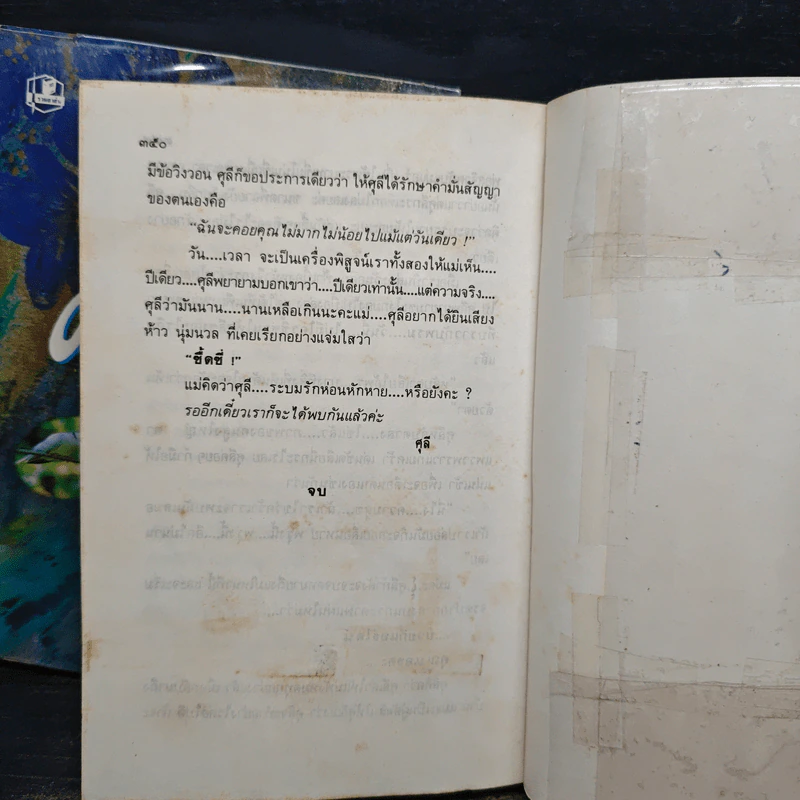 ๓๕๐
มีข้อวิงวอน ศุลีก็ขอประการเดียวว่า ให้ศุลีได้รักษาคำมั่นสัญญา
ของตนเองคือ
“ฉันจะคอยคุณไม่มากไม่น้อยไปแม้แต่วันเดียว !”
วัน....เวลา จะเป็นเครื่องพิสูจน์เราทั้งสองให้แม่เห็น....
ปีเดียว....ศุลีพยายามบอกเขาว่า....ปีเดียวเท่านั้น....แต่ความจริง....
ศุลีว่ามันนาน....นานเหลือเกินนะคะแม่....ศุลีอยากได้ยินเสียง
ห้าว นุ่มนวล ที่เคยเรียกอย่างแจ่มใสว่า
“ซี้ดซี่ !”
แม่คิดว่าศุลี....ระบมรักห่อนหักหาย....หรือยังคะ ?
รออีกเดี๋ยวเราก็จะได้พบกันแล้วค่ะ
ศุลี
จบ